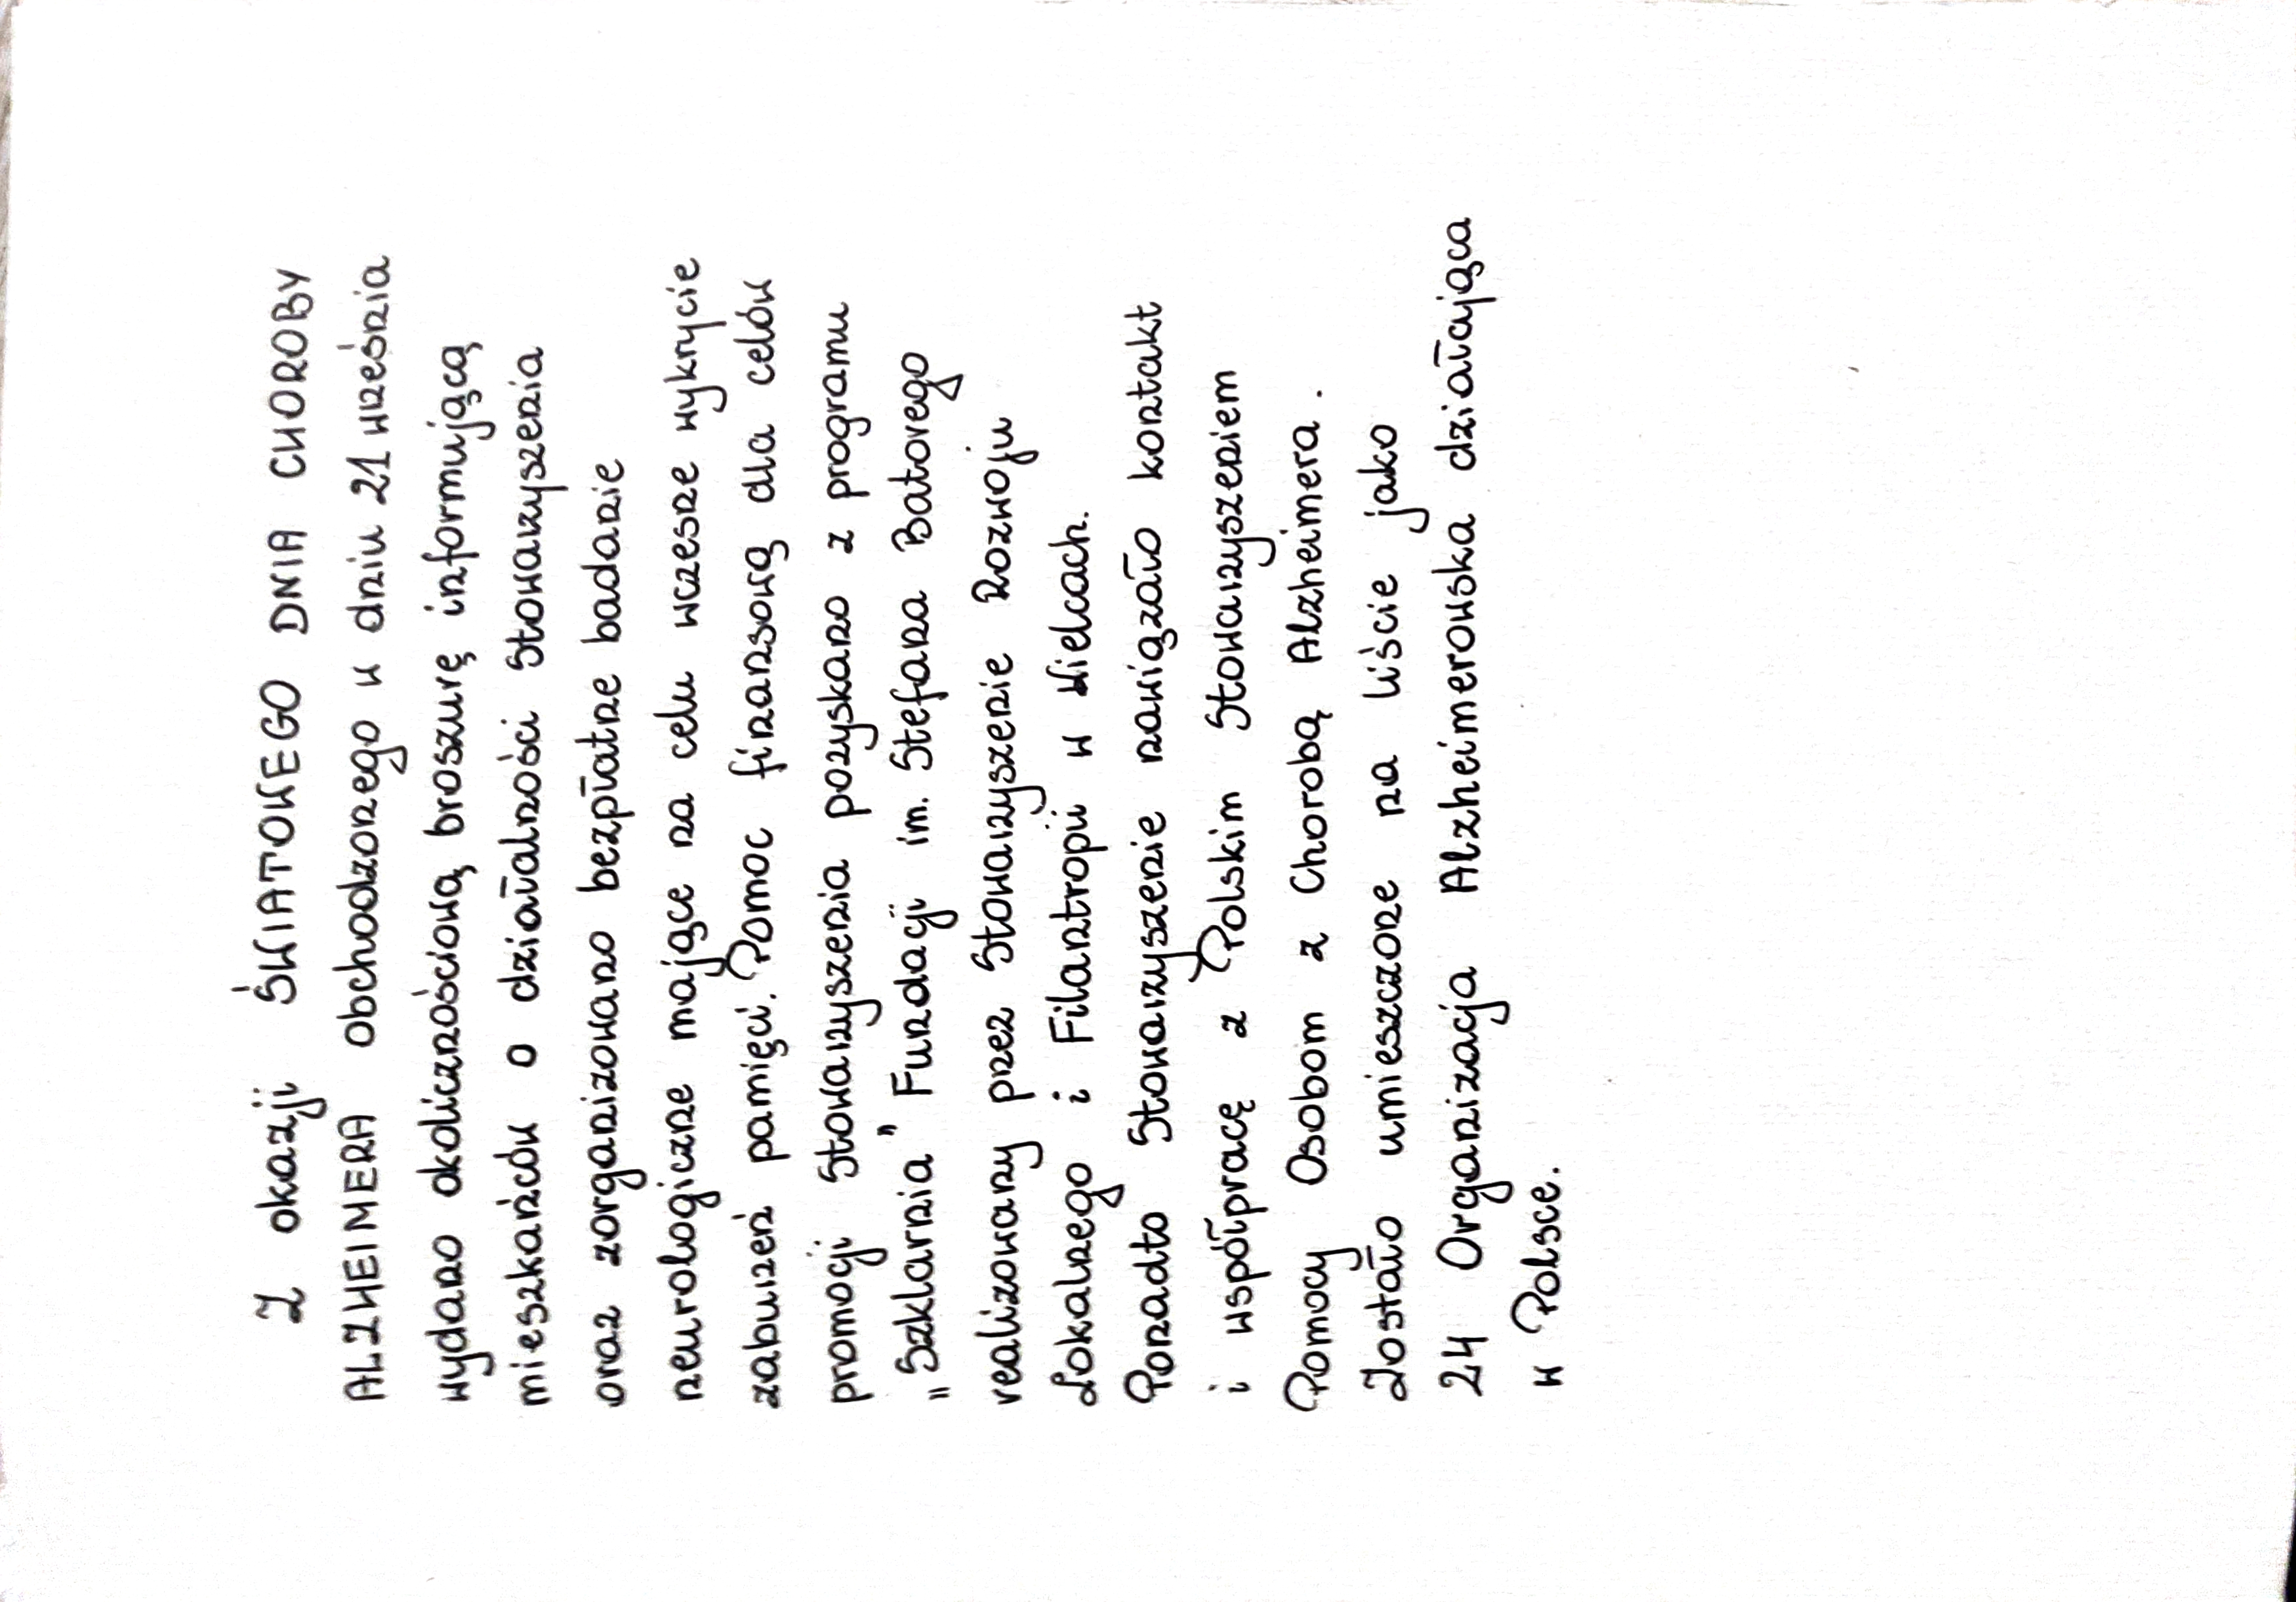 Z okazji ŚWIATOWEGO DNIA CHOROBY
ALZHEIMERA obchodzonego w dniu 21 września
wydano okolicznościową broszurę informującą
mieszkańców o działalności Stowarzyszenia
oraz zorganizowano bezpłatne badanie
neurologiczne mające na celu wczesne wykrycie
zaburzeń pamięci. Pomoc finansową dla celów
promocji Stowarzyszenia pozyskano z programu
„Szklarnia" Fundacji im. Stefana Batorego
realizowany przez Stowarzyszenie Rozwoju
Lokalnego i Filantropii w Kielcach.
Ponadto Stowarzyszenie nawiązało kontakt
i współpracę z Polskim Stowarzyszeniem
Pomocy Osobom z Chorobą Alzheimera.
Zostało umieszczone na liście jako
24 Organizacja Alzheimerowska działająca
w Polsce.